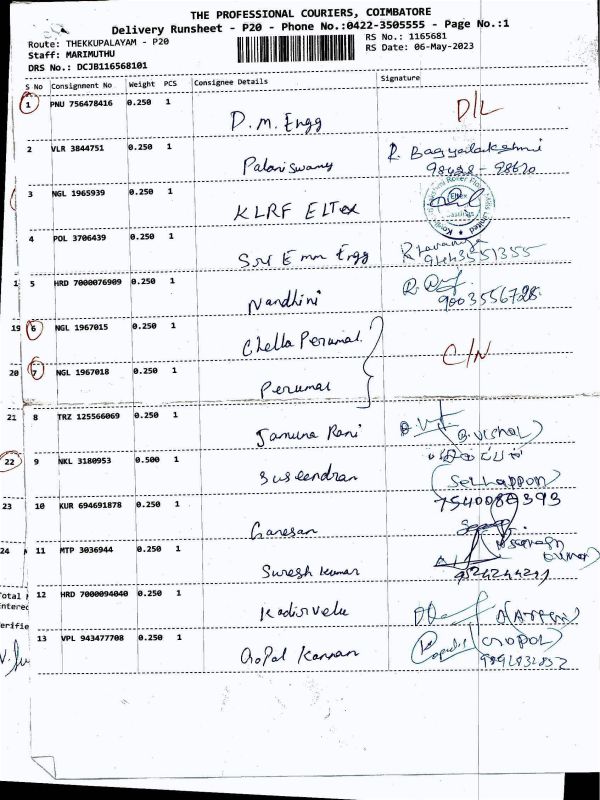 THE PROFESSIONAL COURIERS, COIMBATORE
Delivery Runsheet - P20 - Phone No.:0422-3505555 - Page No.:1
Route: THEKKUPALAYAM - P20
RS No.: 1165681
Staff: MARIMUTHU
RS Date: 06-May-2023
DRS No.: DCJB116568101
S No Consignment No Weight PCS Consignee Details Signature
1 PNU 756478416 0.250 1 D.M. Engg D/L
2 VLR 3844751 0.250 1 Palani Swamy R. Bagyalakshmi
3 NGL 1965939 0.250 1 KLRF ELTex
4 POL 3706439 0.250 1 Sri Emm Engg
9443551355
1 5 HRD 7000076909 0.250 1 Nandhini
9003556728
19 6 NGL 1967015 0.250 1 Chella Perumal
C/N
20 7 NGL 1967018 0.250 1 Perumal
21 8 TRZ 125566069 0.250 1 Jamuna Rani (B. Vishal)
22 9 NKL 3180953 0.500 1 Suseendran (Sellappan)
23 10 KUR 694691878 0.250 1 Ganesan
24 11 MTP 3036944 0.250 1 Suresh Kumar
Total
12 HRD 7000094040 0.250 1 Kadirvelu
13 VPL 943477708 0.250 1 Gopal Kannan (GOPAL)